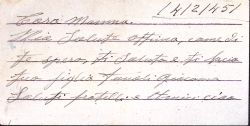 14/2/45/
Cara Mamma.
Mia Salute ottima, come di
te spero, ti saluto e ti bacio
tuo figlio Giacomo
Saluti fratelli e ciao